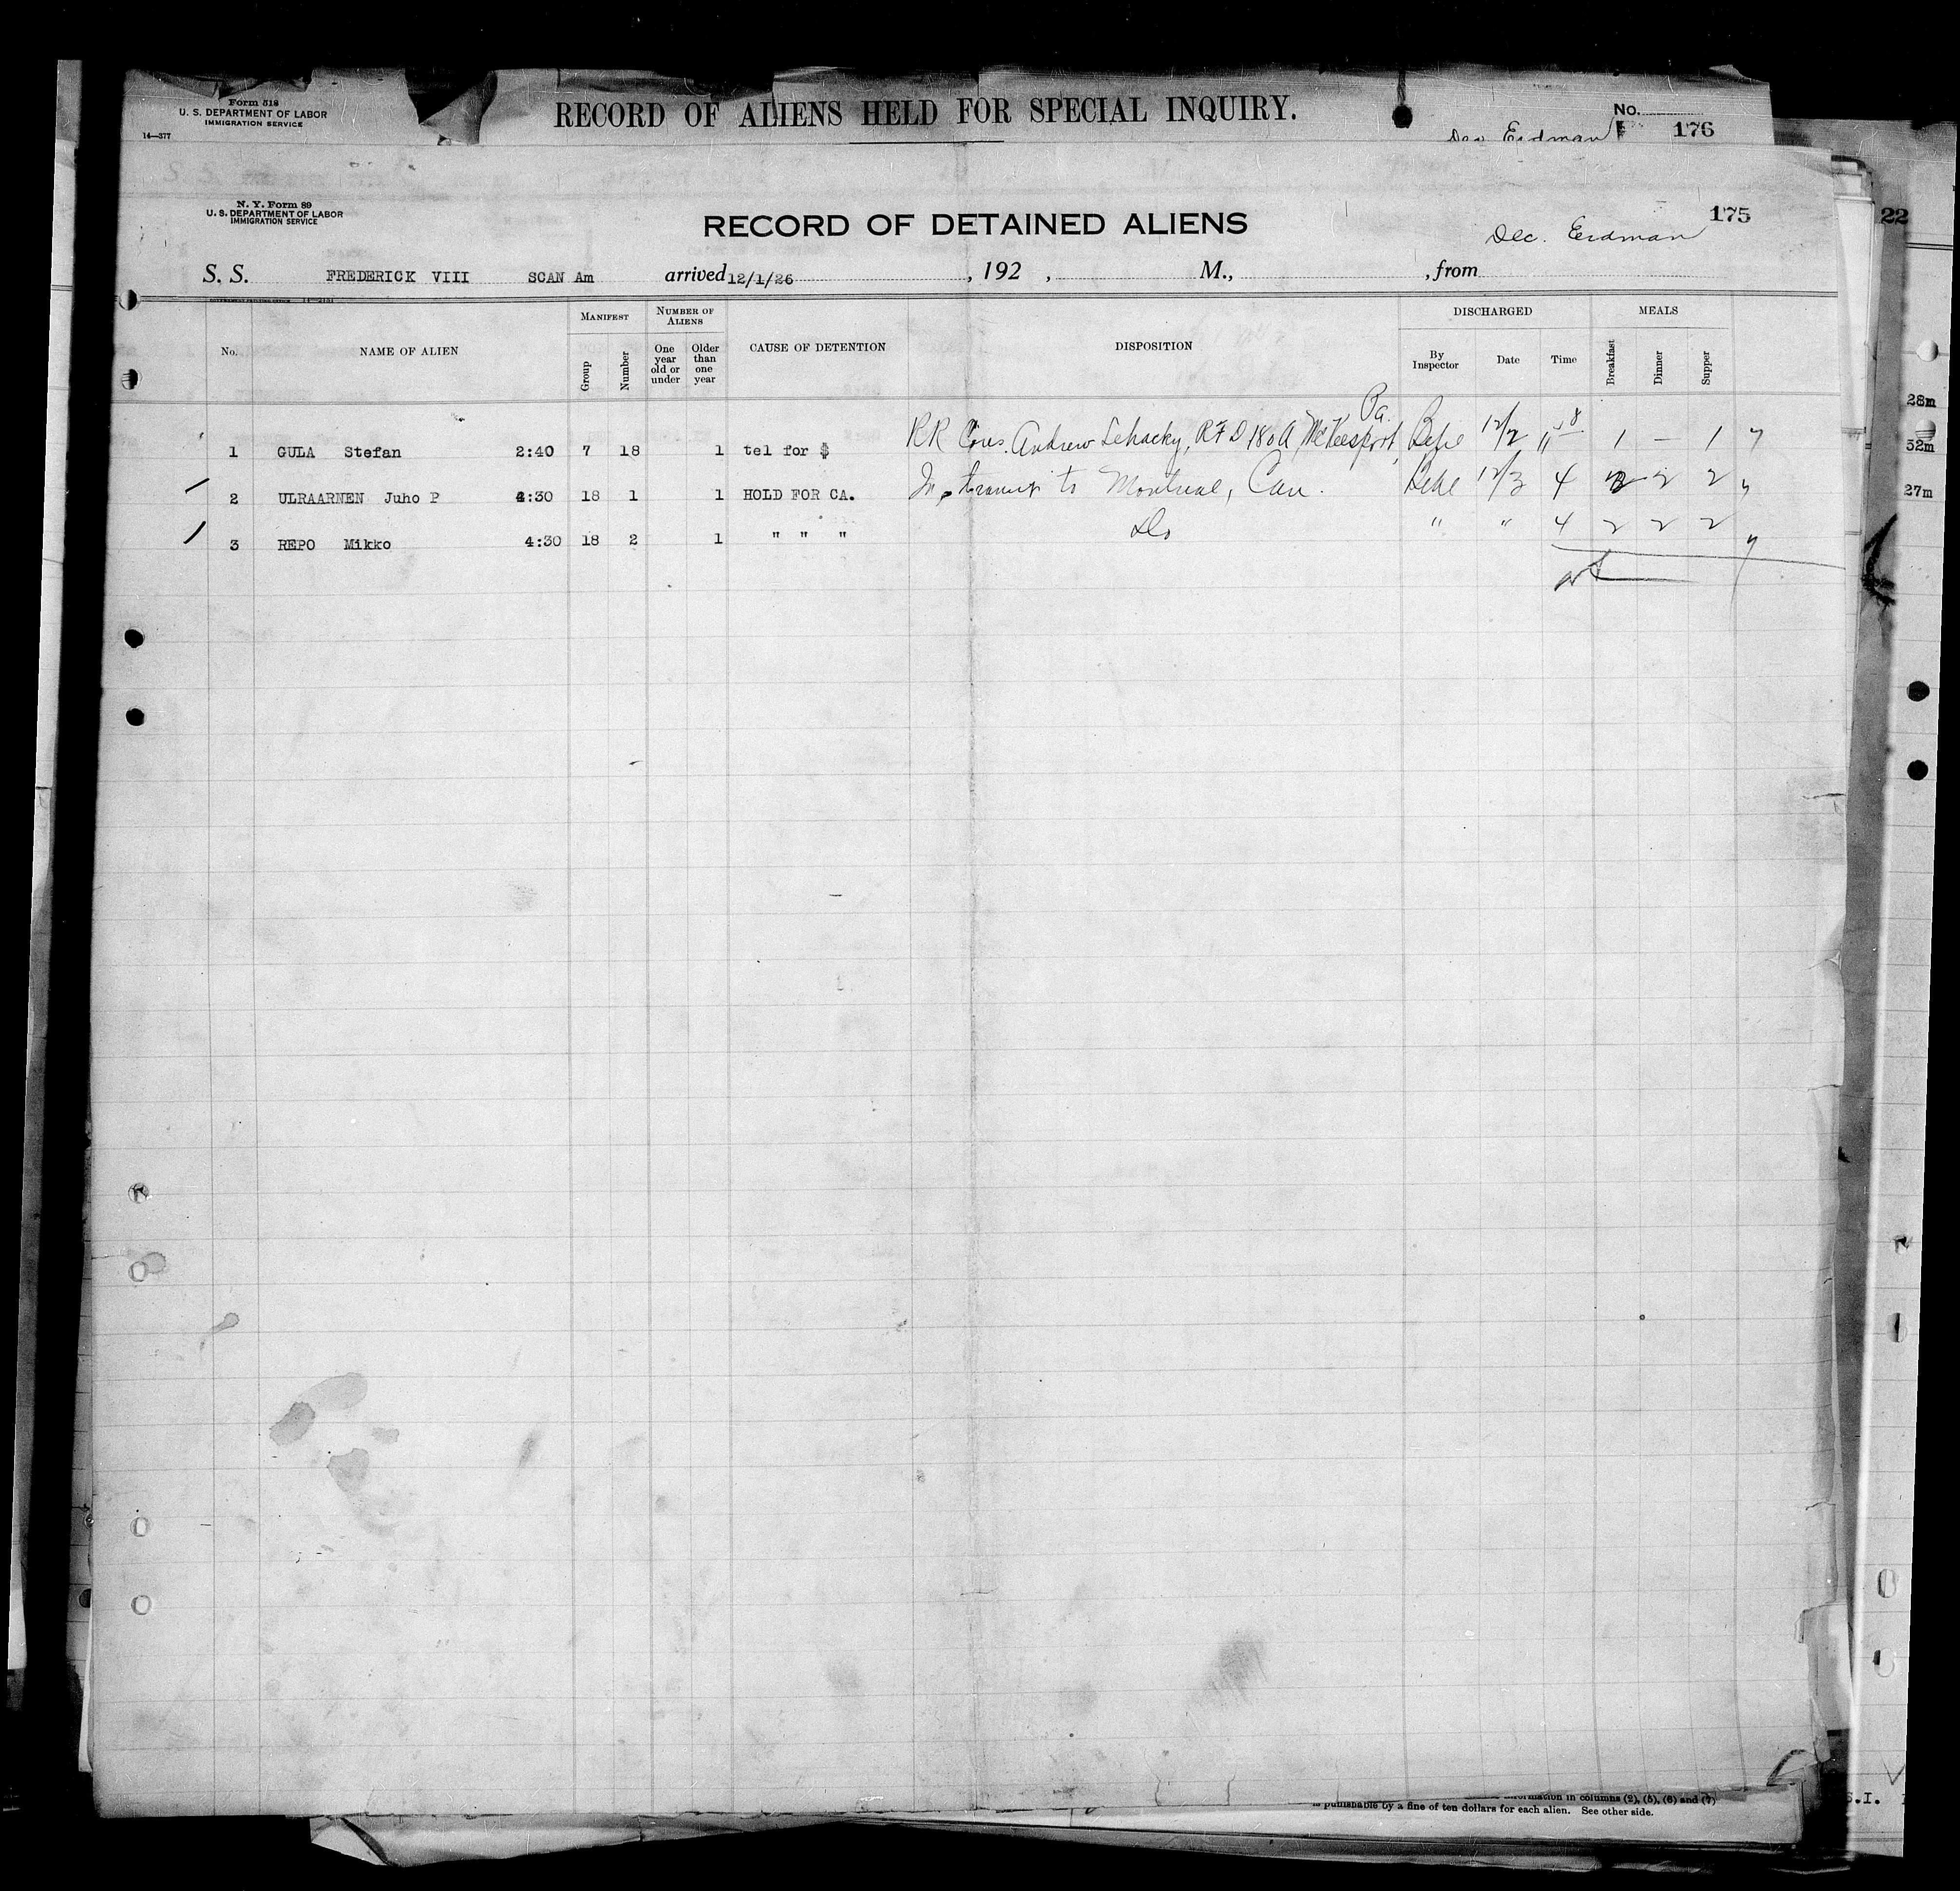 Form 518
U. S. DEPARTMENT OF LABOR
IMMIGRATION SERVICE
14—377
RECORD OF ALIENS HELD FOR SPECIAL INQUIRY.
No.
Erdman
176
N. Y. Form 89
U. S. DEPARTMENT OF LABOR
IMMIGRATION SERVICE
RECORD OF DETAINED ALIENS
175
22
Dec. Erdman
S. S. FREDERICK VIII SCAN Am arrived 12/1/26 , 192 , M., , from
GOVERNMENT PRINTING OFFICE
No. NAME OF ALIEN MANIFEST Group Number NUMBER OF ALIENS One year old or under Older than one year CAUSE OF DETENTION DISPOSITION DISCHARGED By Inspector Date Time MEALS Breakfast Dinner Supper
28m
52m
27m
Pa.
1 GULA Stefan 2:40 7 18 1 tel for $ RR Cous. Andrew RFD 180A McKeesport, 12/2 1 — 1
2 ULRAARNEN Juho P 4:30 18 1 1 HOLD FOR CA. In transit to Montreal, Can. 12/3 4 2 2 2
3 REPO Mikko 4:30 18 2 1 " " " Do " " 4 2 2 2
information in columns (2), (5), (6) and (7)
is punishable by a fine of ten dollars for each alien. See other side.
S.I.